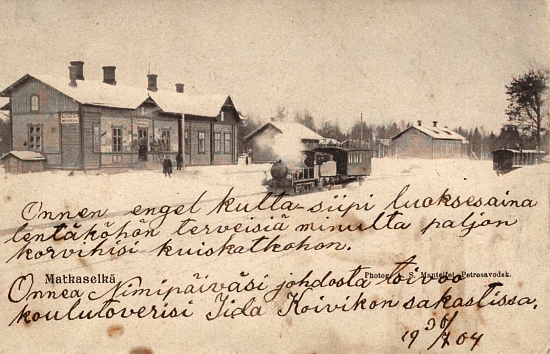 Onnen engel kulta-siipi luoksesaina
lentäköhön terveisiä minulta paljon
korvihisi kuiskatkohon.
Matkaselkä
Photogr. S. Manteifel, Petrosavodsk.
Onnea Nimipäiväsi johdosta toivoo
koulutoverisi Iida Koivikon sakastissa.
19 30/7 04